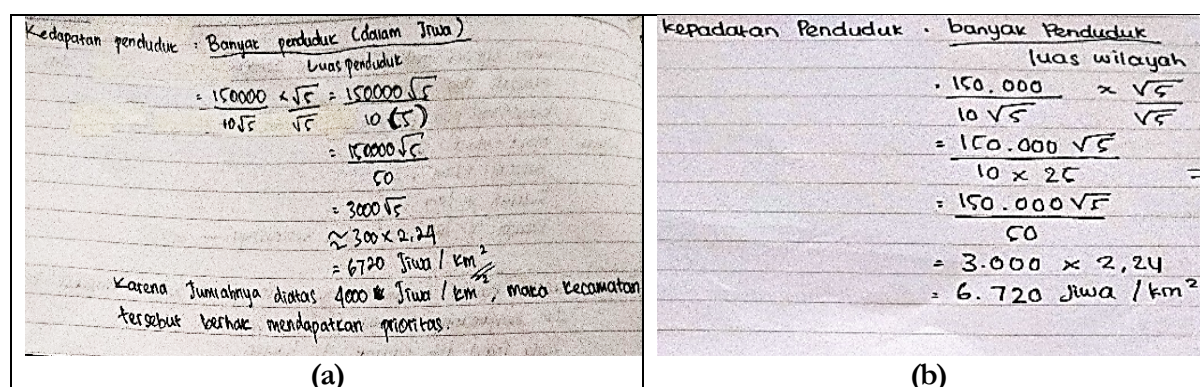 Kedapatan penduduk : Banyak penduduk (dalam Jiwa)
Luas penduduk
= 150000 × √5 = 150000 √5
10√5 √5 10 (5)
= 150000 √5
50
= 3000 √5
≈ 300 × 2,24
= 6720 Jiwa / km²
Karena Jumlahnya diatas 4000 Jiwa / km², maka kecamatan
tersebut berhak mendapatkan prioritas.
(a)
Kepadatan Penduduk = banyak Penduduk
luas wilayah
= 150.000 × √5
10 √5 √5
= 150.000 √5
10 × 25
=
= 150.000 √5
50
= 3.000 × 2,24
= 6.720 Jiwa / km²
(b)